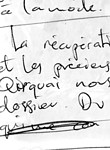 à la mode.
La récupérati
et les précieus
Pourquoi nous
dossier. Du